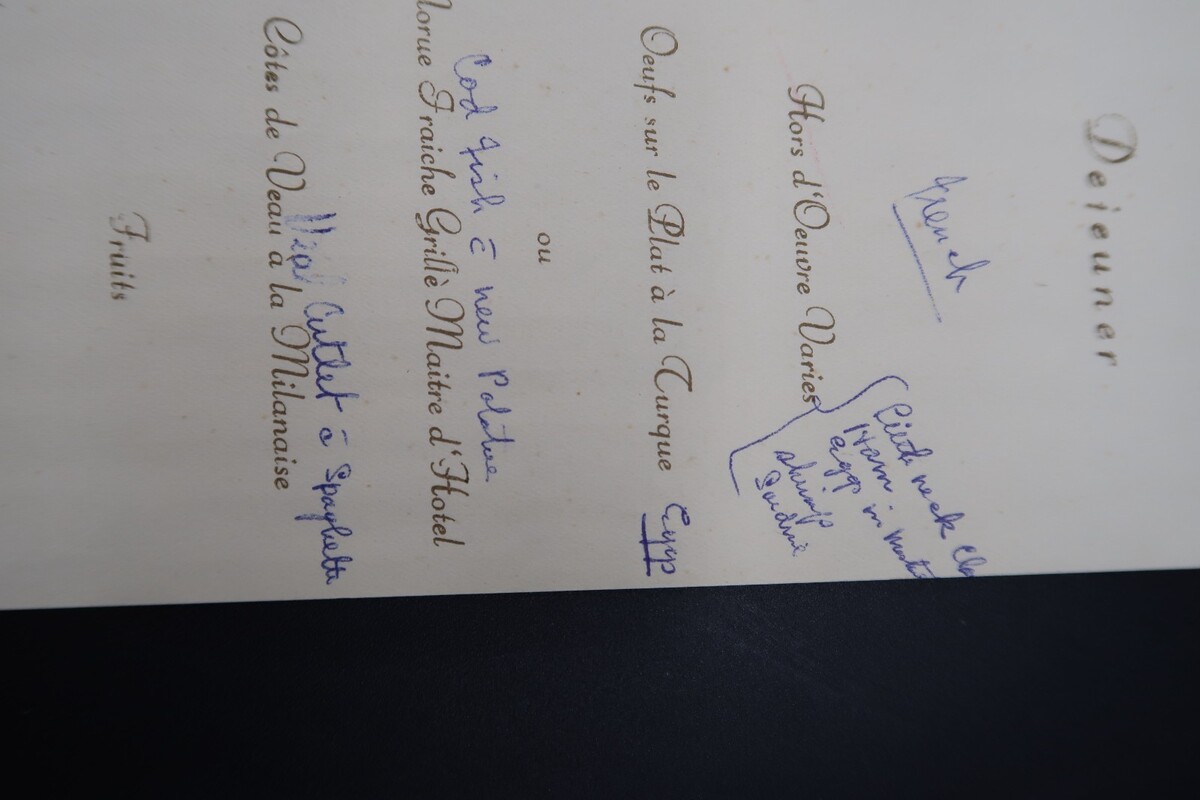 Dejeuner
French
Hors d'Oeuvre Varies
neck
Ham
eggs in
shrimp
Sardine
Oeufs sur le Plat à la Turque Eggs
ou
Cod fish c̄ new
Fraiche Grillè Maitre d'Hotel
Veal Cutlet c̄ Spaghetti
Côtes de Veau à la Milanaise
Fruits